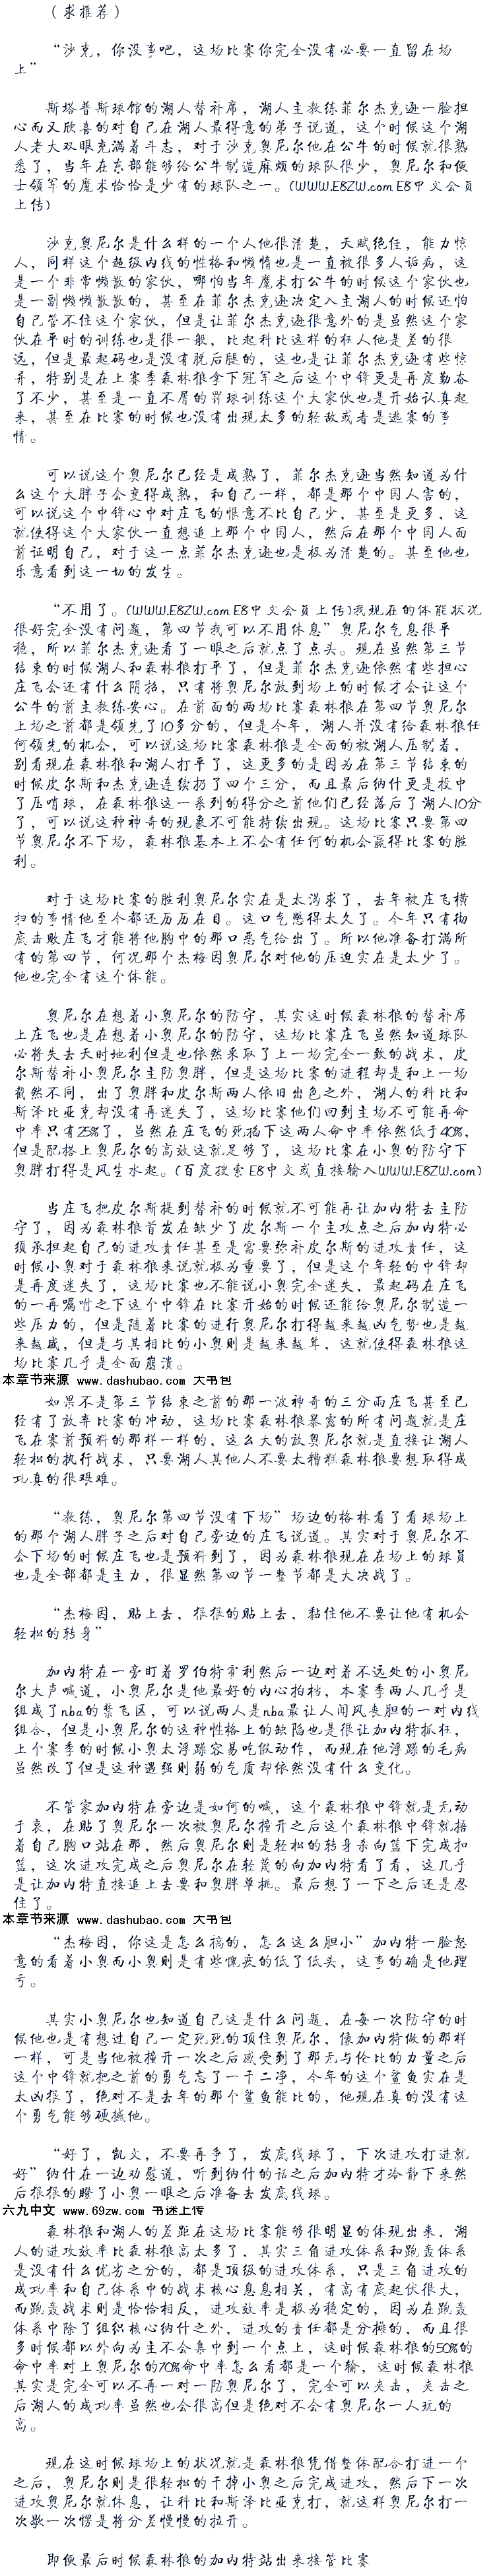 （求推荐）
“沙克，你没事吧，这场比赛你完全没有必要一直留在场
上”
斯塔普斯球馆的湖人替补席，湖人主教练菲尔杰克逊一脸担
心而又欣喜的对自己在湖人最得意的弟子说道，这个时候这个湖
人老大双眼充满着斗志，对于沙克奥尼尔他在公牛的时候就很熟
悉了，当年在东部能够给公牛制造麻烦的球队很少，奥尼尔和便
士领军的魔术恰恰是少有的球队之一。(WWW.E8ZW.com E8中文会员
上传)
沙克奥尼尔是什么样的一个人他很清楚，天赋绝佳，能力惊
人，同样这个超级内线的性格和懒惰也是一直被很多人诟病，这
是一个非常懒散的家伙，哪怕当年魔术打公牛的时候这个家伙也
是一副懒懒散散的，甚至在菲尔杰克逊决定入主湖人的时候还怕
自己管不住这个家伙，但是让菲尔杰克逊很意外的是虽然这个家
伙在平时的训练也是很一般，比起科比这样的狂人他是差的很
远，但是最起码也是没有脱后腿的，这也是让菲尔杰克逊有些惊
异，特别是在上赛季森林狼拿下冠军之后这个中锋更是再度勤奋
了不少，甚至是一直不屑的罚球训练这个大家伙也是开始认真起
来，甚至在比赛的时候也没有出现太多的轻敌或者是逃赛的事
情。
可以说这个奥尼尔已经是成熟了，菲尔杰克逊当然知道为什
么这个大胖子会变得成熟，和自己一样，都是那个中国人害的，
可以说这个中锋心中对庄飞的恨意不比自己少，甚至是更多，这
就使得这个大家伙一直想追上那个中国人，然后在那个中国人面
前证明自己，对于这一点菲尔杰克逊也是极为清楚的。甚至他也
乐意看到这一切的发生。
“不用了。(WWW.E8ZW.com E8中文会员上传)我现在的体能状况
很好完全没有问题，第四节我可以不用休息”奥尼尔气息很平
稳，所以菲尔杰克逊看了一眼之后就点了点头。现在虽然第三节
结束的时候湖人和森林狼打平了，但是菲尔杰克逊依然有些担心
庄飞会还有什么阴招，只有将奥尼尔放到场上的时候才会让这个
公牛的前主教练安心。在前面的两场比赛森林狼在第四节奥尼尔
上场之前都是领先了10多分的，但是今年，湖人并没有给森林狼任
何领先的机会，可以说这场比赛森林狼是全面的被湖人压制着，
别看现在森林狼和湖人打平了，这更多的是因为在第三节结束的
时候皮尔斯和杰克逊连续扔了四个三分，而且最后纳什更是投中
了压哨球，在森林狼这一系列的得分之前他们已经落后了湖人10分
了，可以说这种神奇的现象不可能持续出现。这场比赛只要第四
节奥尼尔不下场，森林狼基本上不会有任何的机会赢得比赛的胜
利。
对于这场比赛的胜利奥尼尔实在是太渴求了，去年被庄飞横
扫的事情他至今都还历历在目。这口气憋得太久了。今年只有彻
底击败庄飞才能将他胸中的那口恶气给出了。所以他准备打满所
有的第四节，何况那个杰梅因奥尼尔对他的压迫实在是太少了。
他也完全有这个体能。
奥尼尔在想着小奥尼尔的防守，其实这时候森林狼的替补席
上庄飞也是在想着小奥尼尔的防守，这场比赛庄飞虽然知道球队
必将失去天时地利但是也依然采取了上一场完全一致的战术，皮
尔斯替补小奥尼尔主防奥胖，但是这场比赛的进程却是和上一场
截然不同，出了奥胖和皮尔斯两人依旧出色之外，湖人的科比和
斯泽比亚克却没有再迷失了，这场比赛他们回到主场不可能再命
中率只有25%了，虽然在庄飞的死掐下这两人命中率依然低于40%，
但是配搭上奥尼尔的高效这就足够了，这场比赛在小奥的防守下
奥胖打得是风生水起。(百度搜索 E8中文或直接输入WWW.E8ZW.com)
当庄飞把皮尔斯提到替补的时候就不可能再让加内特去主防
守了，因为森林狼首发在缺少了皮尔斯一个主攻点之后加内特必
须承担起自己的进攻责任甚至是需要弥补皮尔斯的进攻责任，这
时候小奥对于森林狼来说就极为重要了，但是这个年轻的中锋却
是再度迷失了，这场比赛也不能说小奥完全迷失，最起码在庄飞
的一再嘱咐之下这个中锋在比赛开始的时候还能给奥尼尔制造一
些压力的，但是随着比赛的进行奥尼尔打得越来越凶气势也是越
来越盛，但是与其相比的小奥则是越来越耸，这就使得森林狼这
场比赛几乎是全面崩溃。
本章节来源 www.dashubao.com 大书包
如果不是第三节结束之前的那一波神奇的三分雨庄飞甚至已
经有了放弃比赛的冲动，这场比赛森林狼暴露的所有问题就是庄
飞在赛前预料的那样一样的，这么大的放奥尼尔就是直接让湖人
轻松的执行战术，只要湖人其他人不要太糟糕森林狼要想取得成
功真的很艰难。
“教练，奥尼尔第四节没有下场”场边的格林看了看球场上
的那个湖人胖子之后对自己旁边的庄飞说道。其实对于奥尼尔不
会下场的时候庄飞也是预料到了，因为森林狼现在在场上的球员
也是全部都是主力，很显然第四节一整节都是大决战了。
“杰梅因，贴上去，狠狠的贴上去，黏住他不要让他有机会
轻松的转身”
加内特在一旁盯着罗伯特霍利然后一边对着不远处的小奥尼
尔大声喊道，小奥尼尔是他最好的内心拍档，本赛季两人几乎是
组成了nba的禁飞区，可以说两人是nba最让人闻风丧胆的一对内线
组合，但是小奥尼尔的这种性格上的缺陷也是很让加内特抓狂，
上个赛季的时候小奥太浮躁容易吃假动作，而现在他浮躁的毛病
虽然改了但是这种遇强则弱的气质却依然没有什么变化。
不管家加内特在旁边是如何的喊，这个森林狼中锋就是无动
于衷，在贴了奥尼尔一次被奥尼尔撞开之后这个森林狼中锋就捂
着自己胸口站在那，然后奥尼尔则是轻松的转身杀向篮下完成扣
篮，这次进攻完成之后奥尼尔在轻蔑的向加内特看了看，这几乎
是让加内特直接追上去要和奥胖单挑。最后想了一下之后还是忍
住了。
本章节来源 www.dashubao.com 大书包
“杰梅因，你这是怎么搞的，怎么这么胆小”加内特一脸怒
意的看着小奥而小奥则是有些愧疚的低了低头，这事的确是他理
亏。
其实小奥尼尔也知道自己这是什么问题，在每一次防守的时
候他也是有想过自己一定死死的顶住奥尼尔，像加内特做的那样
一样，可是当他被撞开一次之后感受到了那无与伦比的力量之后
这个中锋就把之前的勇气忘了一干二净，今年的这个鲨鱼实在是
太凶狠了，绝对不是去年的那个鲨鱼能比的，他现在真的没有这
个勇气能够硬撼他。
“好了，凯文，不要再争了，发底线球了，下次进攻打进就
好”纳什在一边劝慰道，听到纳什的话之后加内特才冷静下来然
后狠狠的瞪了小奥一眼之后准备去发底线球。
六九中文 www.69zw.com 书迷上传
森林狼和湖人的差距在这场比赛能够很明显的体现出来，湖
人的进攻效率比森林狼高太多了，其实三角进攻体系和跑轰体系
是没有什么优劣之分的，都是顶级的进攻体系，只是三角进攻的
成功率和自己体系中的战术核心息息相关，有高有底起伏很大，
而跑轰战术则是恰恰相反，进攻效率是极为稳定的，因为在跑轰
体系中除了组织核心纳什之外，进攻的责任都是分摊的，而且很
多时候都以外向为主不会集中到一个点上，这时候森林狼的50%的
命中率对上奥尼尔的70%命中率怎么看都是一个输，这时候森林狼
其实是完全可以不再一对一防奥尼尔了，完全可以夹击，夹击之
后湖人的成功率虽然也会很高但是绝对不会有奥尼尔一人玩的
高。
现在这时候球场上的状况就是森林狼凭借整体配合打进一个
之后，奥尼尔则是很轻松的干掉小奥之后完成进攻，然后下一次
进攻奥尼尔就休息，让科比和斯泽比亚克打，就这样奥尼尔打一
次歇一次愣是将分差慢慢的拉开。
即便最后时候森林狼的加内特站出来接管比赛